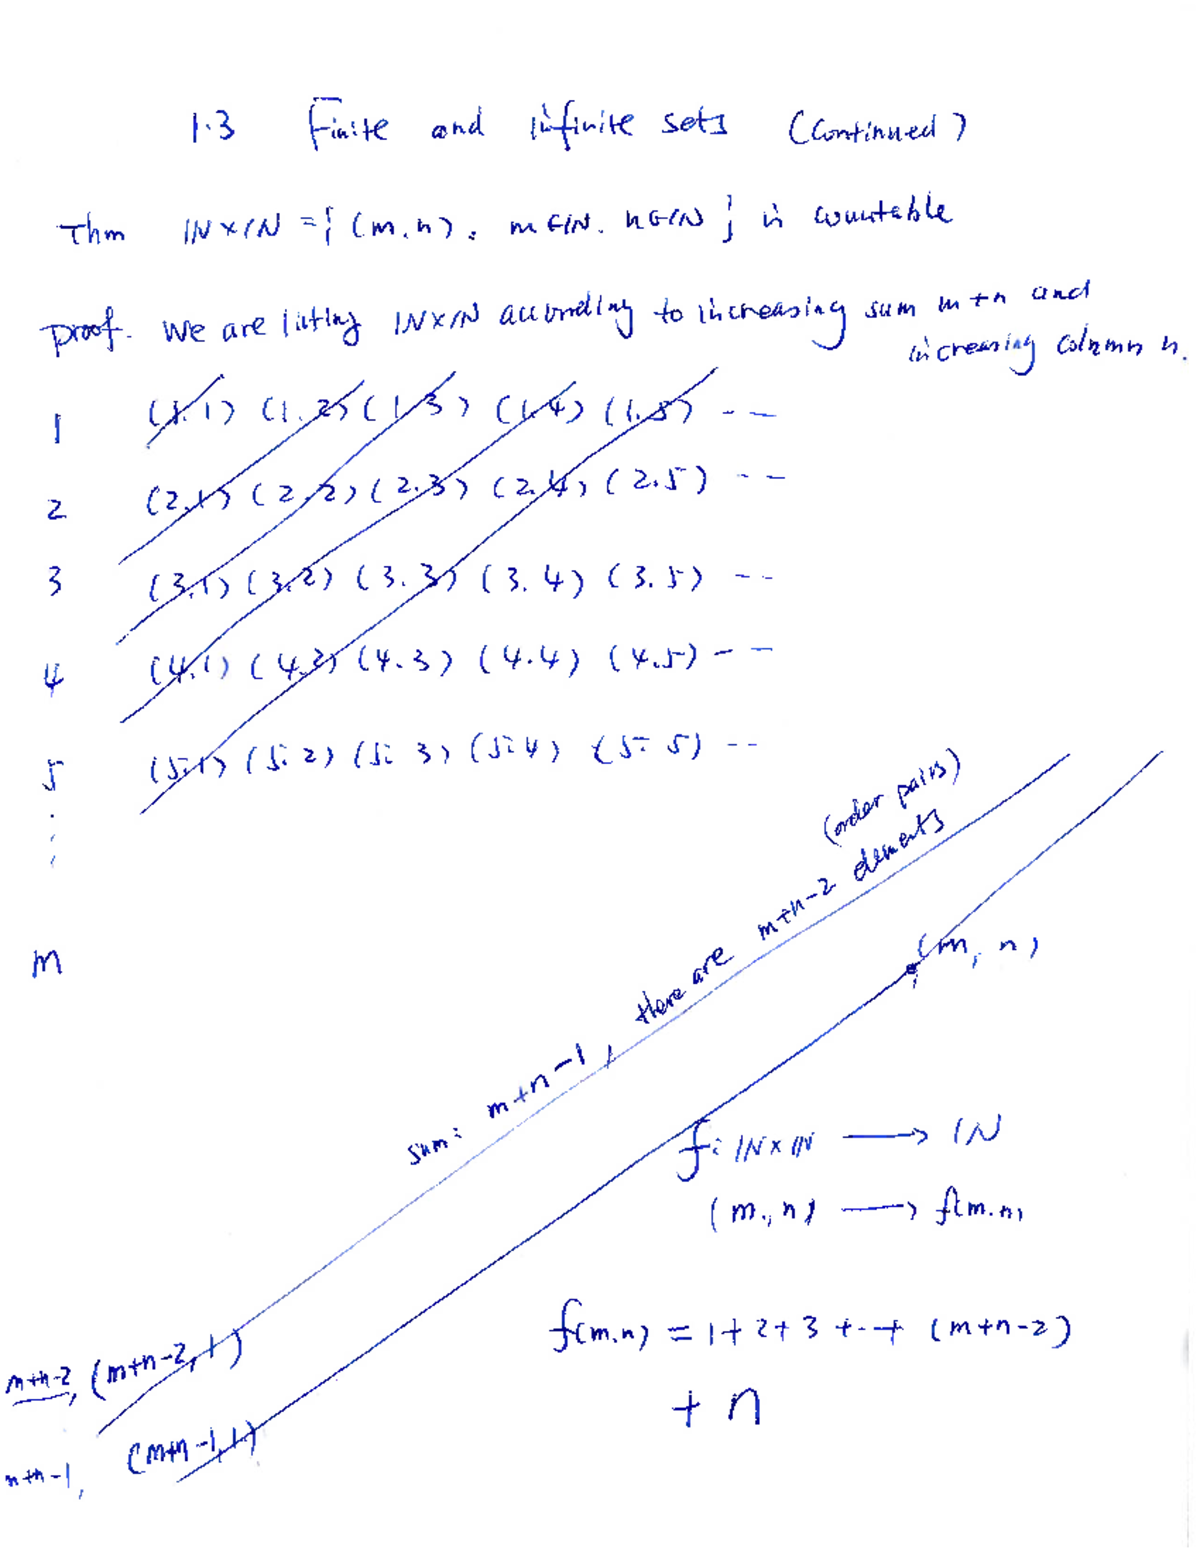 1.3 Finite and infinite sets (Continued)
Thm ℕ×ℕ = { (m,n) : m∈ℕ, n∈ℕ } is countable
proof. We are listing ℕ×ℕ according to increasing sum m+n and
increasing column n.
1 (1,1) (1,2) (1,3) (1,4) (1,5) --
2 (2,1) (2,2) (2,3) (2,4) (2,5) --
3 (3,1) (3,2) (3,3) (3,4) (3,5) --
4 (4,1) (4,2) (4,3) (4,4) (4,5) --
5 (5,1) (5,2) (5,3) (5,4) (5,5) --
(order pairs)
sum: m+n-1, there are m+n-2 elements
m
(m, n)
f: ℕ×ℕ → ℕ
(m, n) → f(m,n)
f(m,n) = 1+2+3+--+ (m+n-2)
+ n
m+n-2, (m+n-2, 1)
m+n-1, (m+n-1, 1)